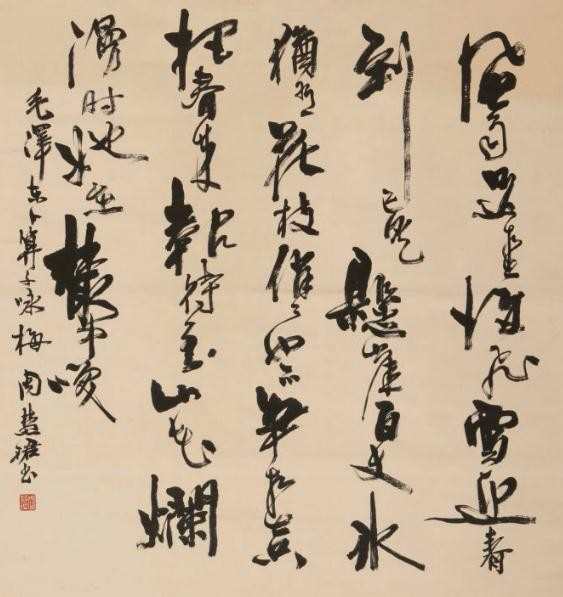 風雨送春歸飛雪迎春
到已是懸崖百丈氷
猶有花枝俏〻也不爭春只
把春來報待到山花爛
漫時她在叢中咲
毛澤東卜算子咏梅 周慧珺書